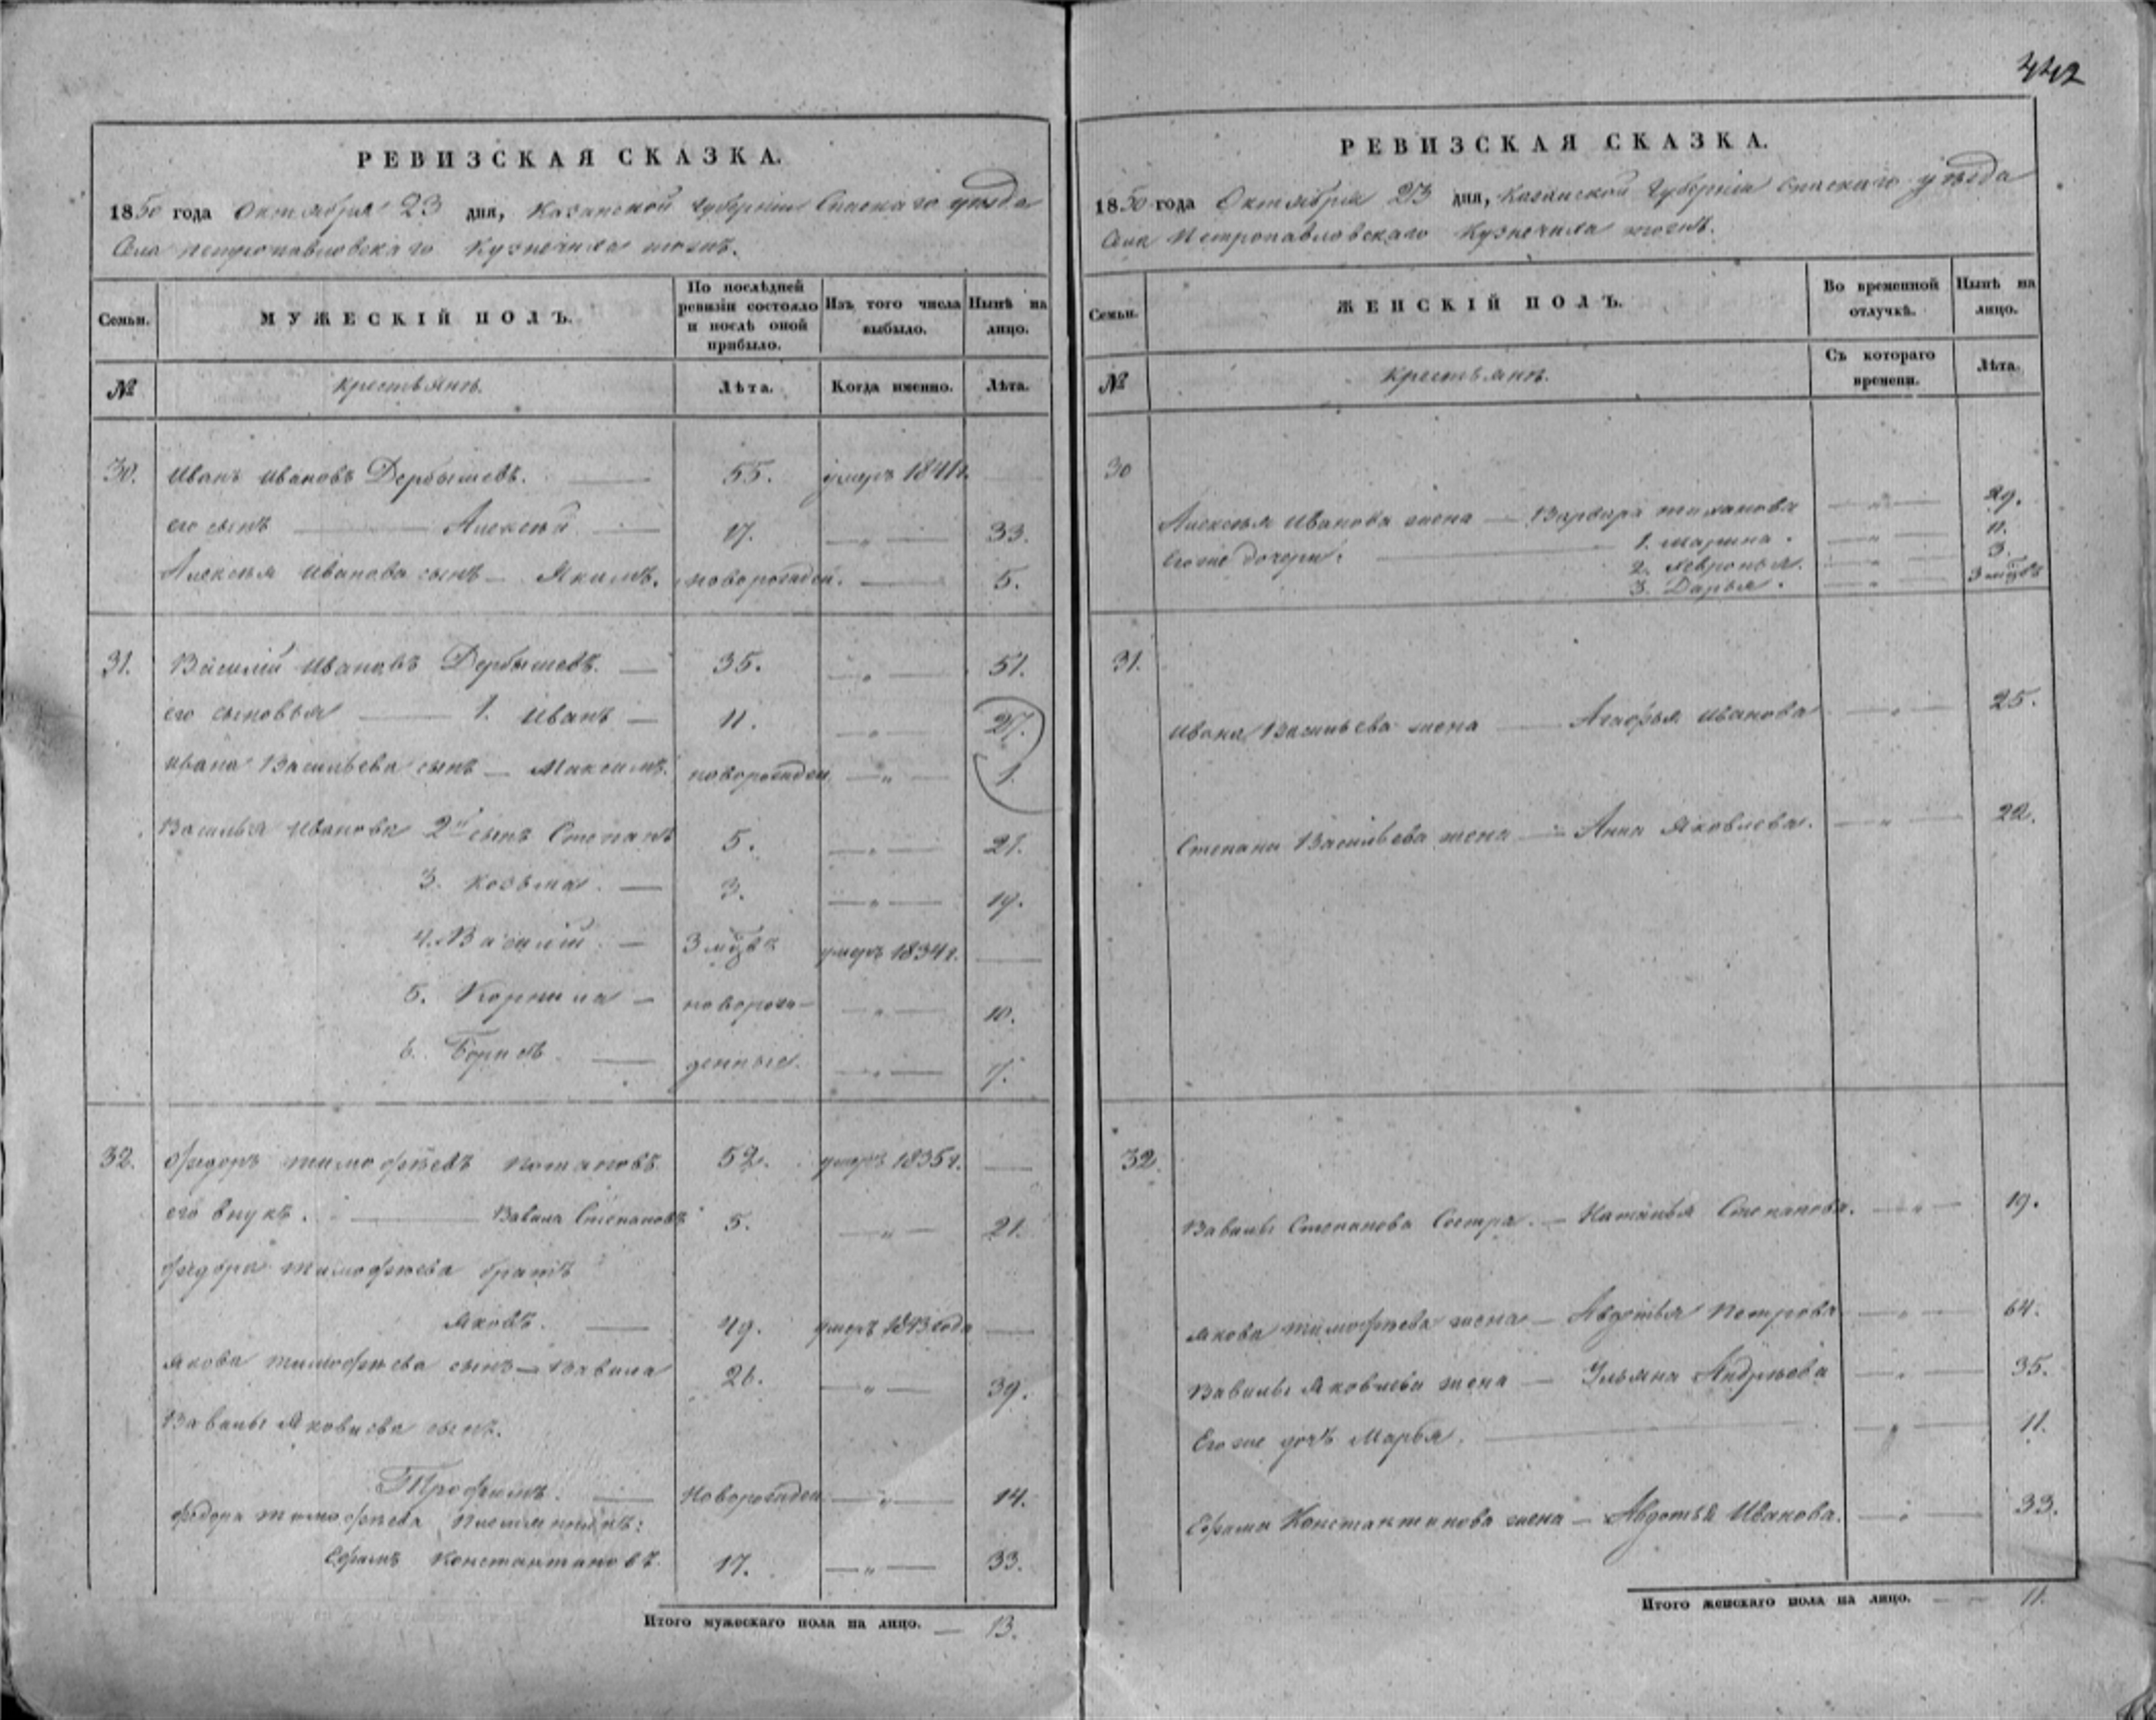 442
РЕВИЗСКАЯ СКАЗКА.
1850 года Октября 23 дня, Казанской губернии Спаскаго уѣзда
Села Петропавловскаго Кузнечиха тожъ.
Семьи. МУЖЕСКІЙ ПОЛЪ. По послѣдней ревизіи состояло и послѣ оной прибыло. Изъ того числа выбыло. Нынѣ на лицо.
№ Крестьянъ. Лѣта. Когда именно. Лѣта.
30. Иванъ Ивановъ Дербышевъ. — 55. умеръ 1841 г. —
его сынъ — Алексѣй — 17. — „ — 33.
Алексѣя Иванова сынъ — Якимъ. новорожден. — 5.
31. Василій Ивановъ Дербышевъ. — 35. — „ — 51.
его сыновья — 1. Иванъ — 11. — „ — 27.
Ивана Васильева сынъ — Максимъ. новорожден — „ — 1.
Василья Иванова 2й сынъ Степанъ 5. — „ — 21.
3. Козьма. — 3. — „ — 19.
4. Василій. — 3 мцвъ умеръ 1834 г. —
5. Корнила — новорож- — „ — 10.
6. Борисъ. — денные. — „ — 7.
32. Федоръ Тимофѣевъ Потаповъ. 52. умеръ 1835 г. —
его внукъ. — Вавила Степановъ 5. — „ — 21.
Федора Тимофѣева братъ
Яковъ. — 49. умеръ 1843 года —
Якова Тимофѣева сынъ — Вавила 26. — „ — 39.
Вавилы Яковлева сынъ.
Трофимъ. — Новорожден — „ — 14.
Федора Тимофѣева племянникъ:
Ефимъ Константиновъ. 17. — „ — 33.
Итого мужескаго пола на лицо. — 13.
РЕВИЗСКАЯ СКАЗКА.
1850 года Октября 23 дня, Казанской Губерніи Спаскаго уѣзда
Села Петропавловскаго Кузнечиха тожъ.
Семьи. ЖЕНСКІЙ ПОЛЪ. Во временной отлучкѣ. Нынѣ на лицо.
№ Крестьянъ. Съ котораго времени. Лѣта.
30
Алексѣя Иванова жена — Варвара — „ — 29.
Его же дочери: — 1. Марина. — „ — 11.
2. Февронья. — „ — 3.
3. Дарья. — „ — 3 мцвъ
31.
Ивана Васильева жена — Агафья Иванова — „ — 25.
Степана Васильева жена — Анна Яковлева. — „ — 22.
32.
Вавилы Степанова Сестра. — Наталья Степанова. — „ — 19.
Якова Тимофѣева жена — Авдотья Петрова — „ — 64.
Вавилы Яковлева жена — Ульяна Андрѣева — „ — 35.
Его же дочь Марья. — „ — 11.
Константинова жена — Авдотья Иванова. — „ — 33.
Итого женскаго пола на лицо. — — 11.